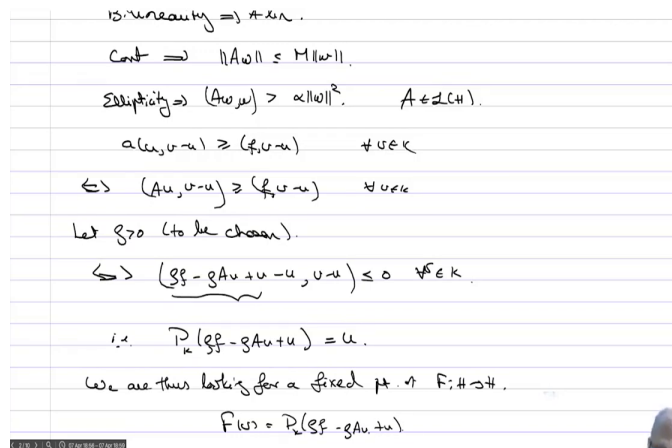 Bilinearity ⇒ A lin.
Cont ⇒ ||Aw|| ≤ M||w||.
Ellipticity ⇒ (Aw, w) ≥ α||w||². A ∈ L(H).
a(u, v-u) ≥ (f, v-u) ∀ v ∈ K
⇔ (Au, v-u) ≥ (f, v-u) ∀ v ∈ K
Let ρ>0 (to be chosen).
⇔ (ρf - ρAu + u - u, v-u) ≤ 0 ∀ v ∈ K.
i.e. P_K(ρf - ρAu + u) = u.
We are thus looking for a fixed pt. of F: H→H.
F(v) = P_K(ρf - ρAv + v)
2 / 10
07 Apr 18:56 - 07 Apr 18:59